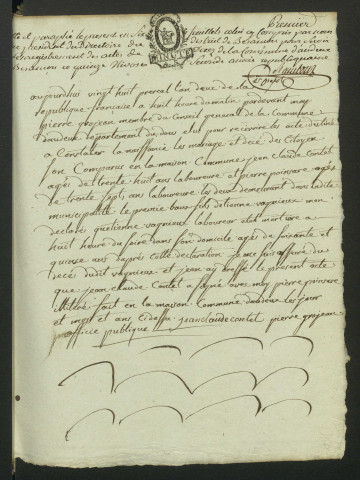 Premier
feuillet celui cy compris par nous
président du Directoire du district de Besançon pour servir
enregistrement des actes de
Besançon ce quinze Nivose seconde année republiquaine
MINUTE
aujourdhuy vingt huit prereal lan deux de la
republique francaise a huit heure du matin par devent moy
pierre grosjean membre du Conseil general de la Commune
departement du doub elus pour recevoir les acte destiné
a Constater la naissance les mariage et décé des Citoyen
son Comparus en la maison Commune jean claude Contet
agés de trente huit ans laboureur et pierre poinsere agés
de trente sept ans laboureur les deux demeurant dans ladite
municipalité le premier beau fils detienne vagnieux mon
declaré quetienne vagnieux laboureur etoit mort hiere a
huit heure du soire dans son domicile agés de soixante et
quinze ans dapres cette declaration je me suis assuré du
decé dudit vagnieux et jean ay dressé le present acte
que jean claude Contet a signé avec moy pierre poinsere
illitéré fait en la maison Commune les jour
et mois et ans cidessu jean claude contet pierre grosjean
officie publique